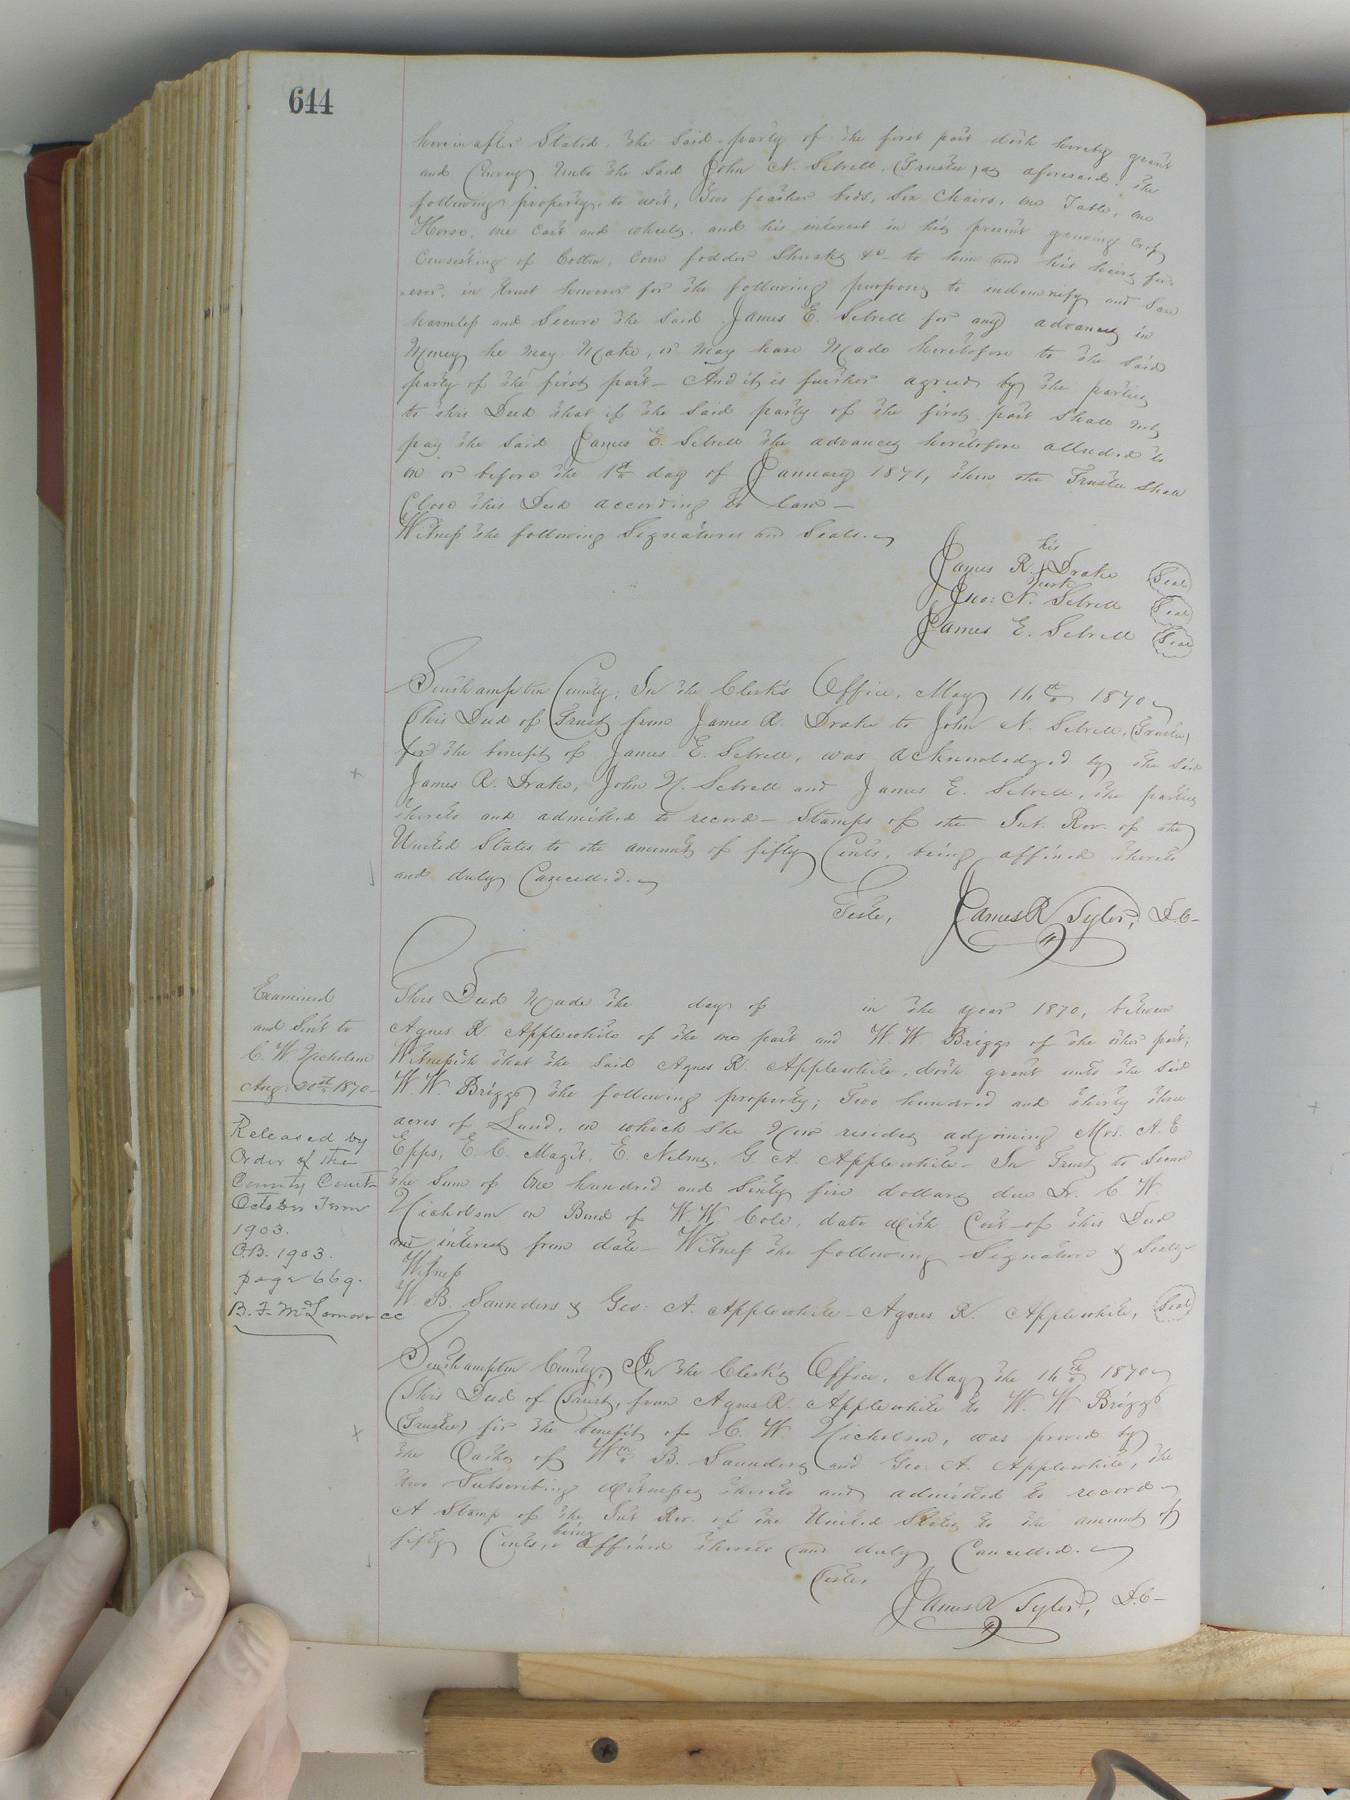 644
hereinafter Stated, the Said party of the first part doth hereby grant
and Convey Unto the Said John N. Sebrell, (Trustee) as aforesaid the
following property, to wit, Two feather beds, Six Chairs, one Table, one
Horse, one Cart and wheels, and his interest in his present growing Crop
Consisting of Cotton, Corn fodder Shucks &c to him and his heirs for
ever, in trust however for the following purposes to indemnify and Save
harmless and Secure the Said James E. Sebrell for any advances in
Money he may Make, or may have Made heretofore to the Said
party of the first part - And it is further agreed by the parties
to this Deed that if the Said party of the first part Shall not
pay the Said James E. Sebrell the advances heretofore alluded to
on or before the 1st day of January 1871, then the Trustee Shall
Close this Deed according to law -
Witness the following Signatures and Seals.
his
James R. Drake (Seal)
mark
Jno: N. Sebrell (Seal)
James E. Sebrell (Seal)
Southampton County, In the Clerk's Office, May 14th 1870
This Deed of Trust from James R. Drake to John N. Sebrell, (Trustee)
for the benefit of James E. Sebrell, was acknowledged by the Said
James R. Drake, John N. Sebrell and James E. Sebrell, the parties
thereto and admitted to record - Stamps of the Int. Rev. of the
United States to the amount of fifty Cents, being affixed thereto
and duly Cancelled.
Teste,
James R Tyler, D.C-
Examined
and Sent to
C. W. Nicholson
Aug. 20th 1870-
Released by
Order of the
County Court
October Term
1903.
O.B. 1903.
page 669.
B. F. McLemore CC
This Deed Made the day of in the year 1870, between
Agnes R Applewhite of the one part and W. W Briggs of the other part;
Witnesseth that the Said Agnes R. Applewhite, doth grant unto the Said
W. W. Briggs the following property; Two hundred and thirty three
acres of Land, on which She Now resides adjoining Mrs. A. E
Epps, E. C. Magit, E. Nelms, G A. Applewhite - In Trust to Secure
the Sum of One hundred and Sixty five dollars due Dr. C. W
Nicholson on Bond of W W Cole, date with Cost of this Deed
interest from date - Witness the following Signature & Seal
Witness
W B. Saunders & Geo: A. Applewhite - Agnes R. Applewhite, (Seal)
Southampton County, In the Clerk's Office, May the 14th 1870
This Deed of Trust, from Agnes R. Applewhite to W. W Briggs
(Trustee) for the benefit of C. W Nicholson, was proved by
the Oaths of Wm B. Saunders and Geo. A. Applewhite, the
two Subscribing Witnesses thereto and admitted to record
A Stamp of the Int Rev. of the United States to the amount of
fifty Cents, being affixed thereto and duly Cancelled.
Teste,
James R Tyler, D.C-